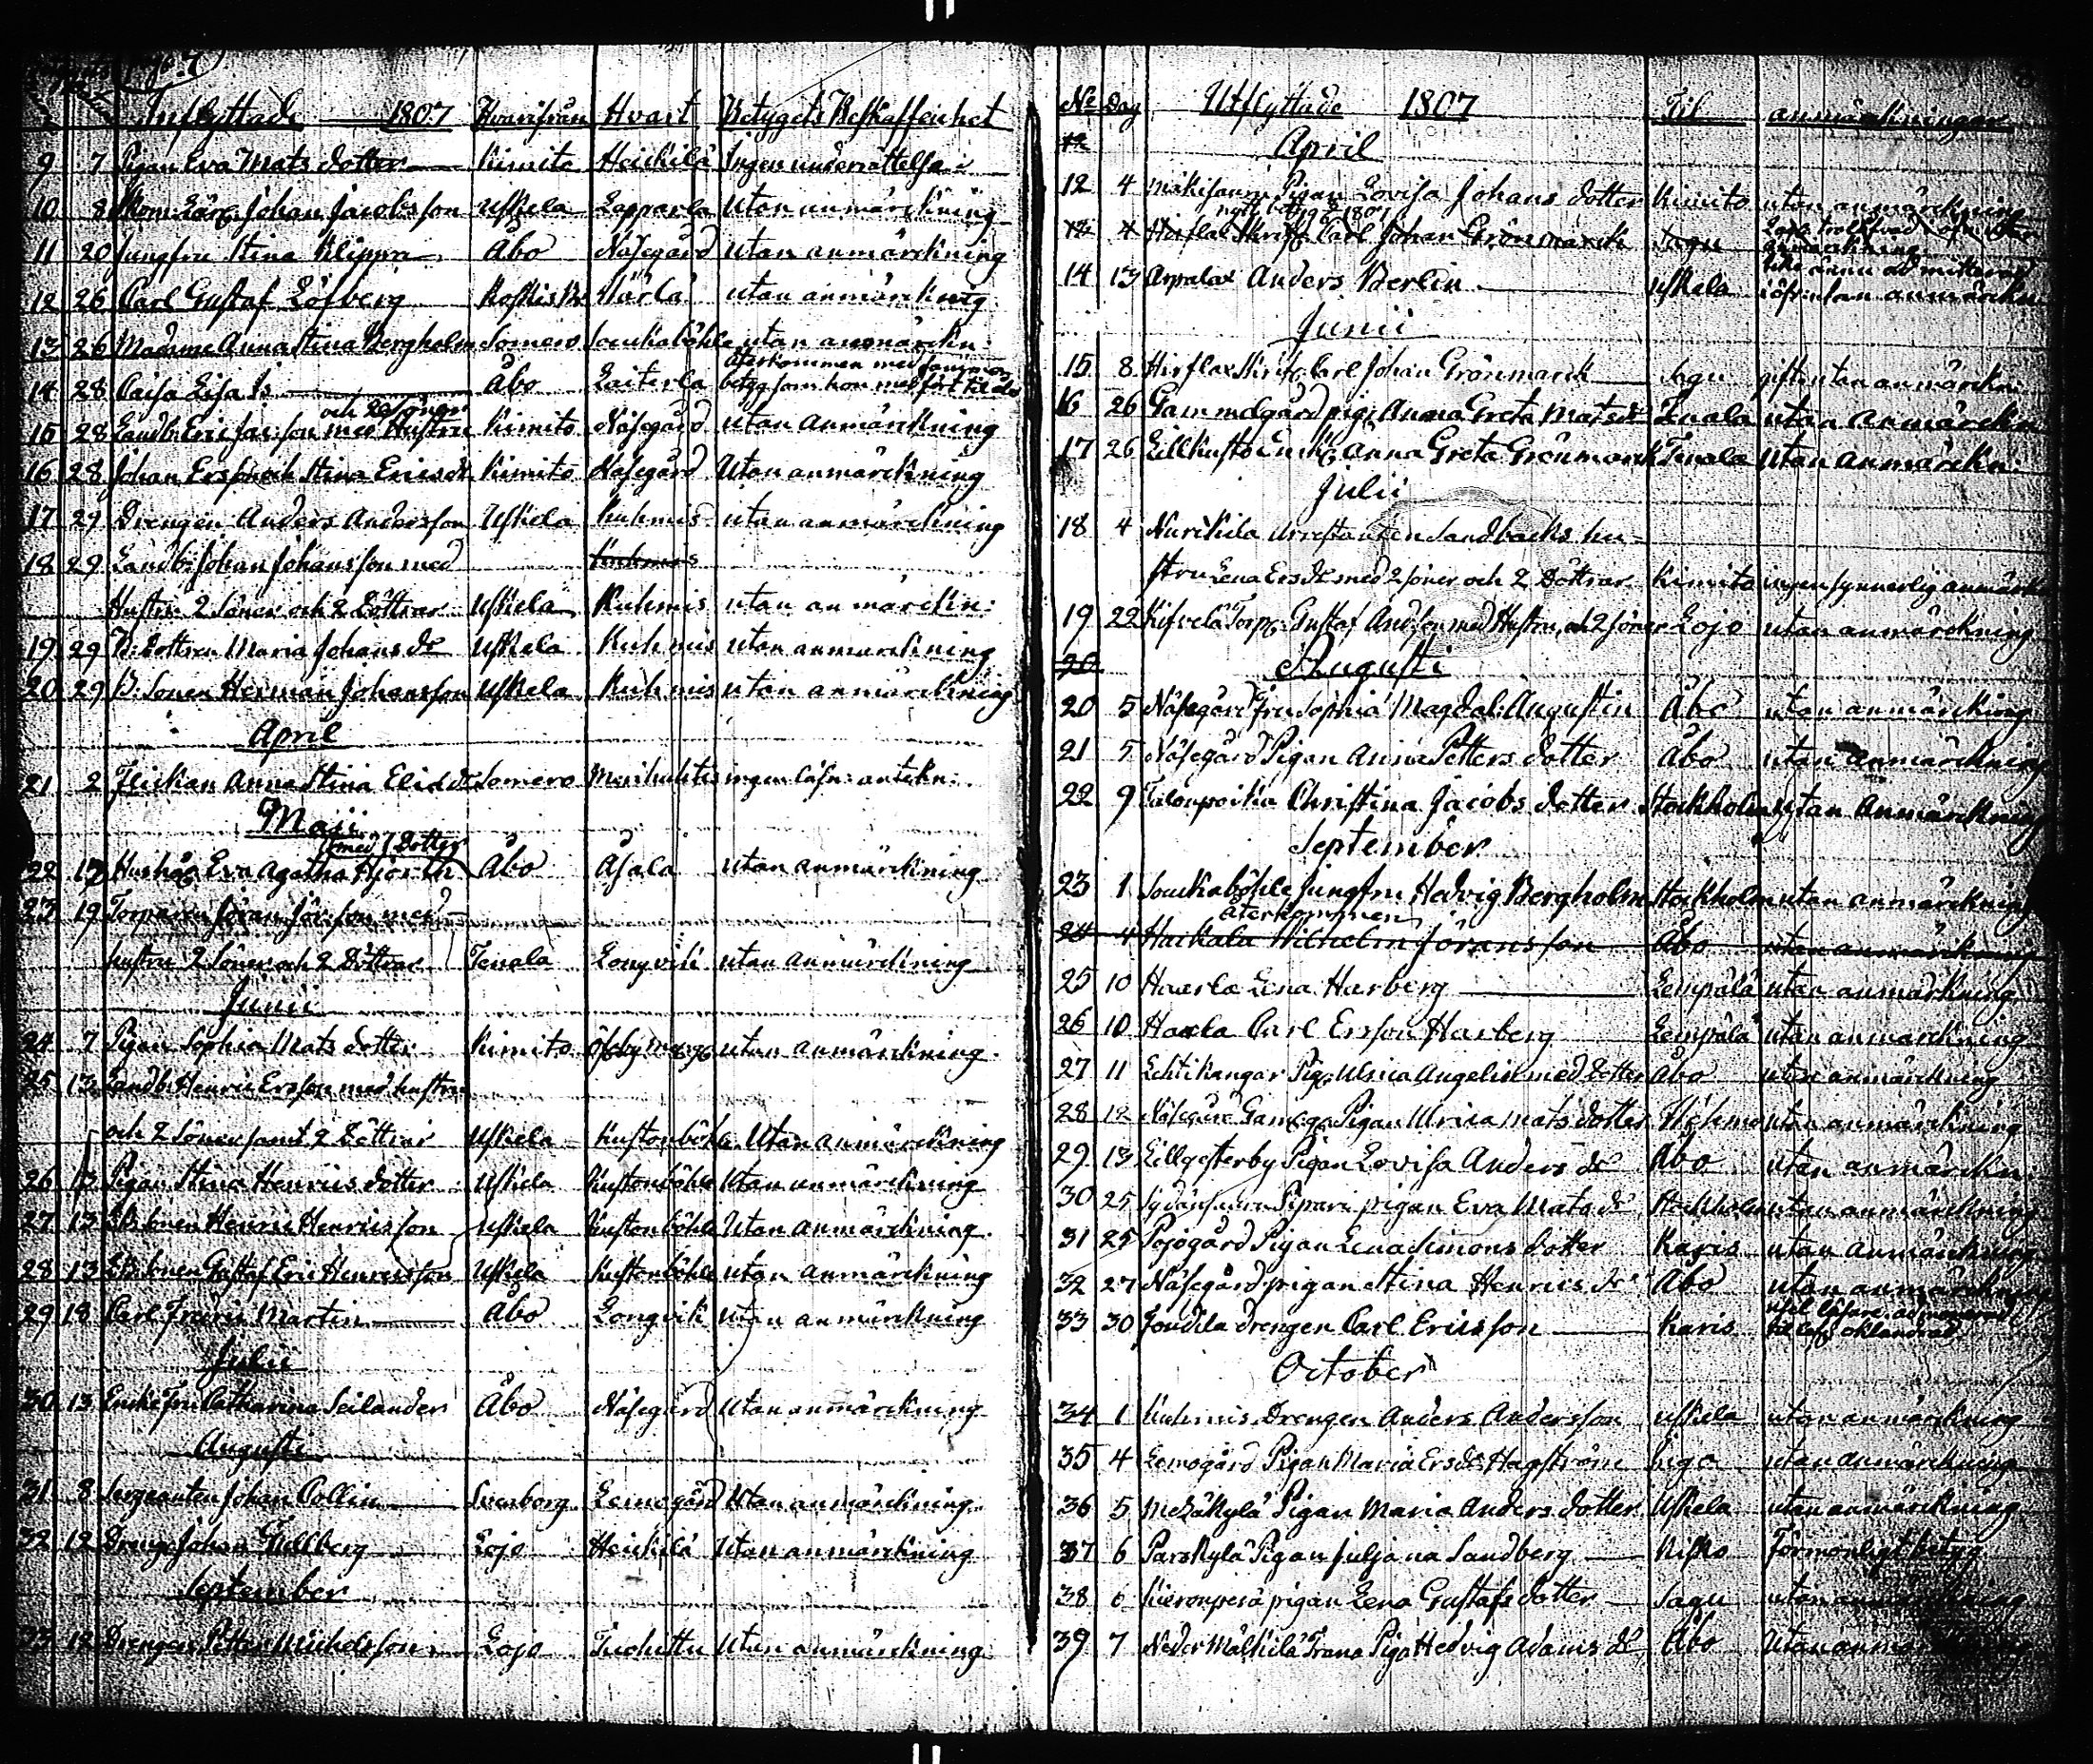 Inflyttade 1807 Hvarifrån Hvart Betygets Beskaffenhet
9 7 Pigan Eva Mats dotter Kimito Heickilä Ingen underrättelse
10 8 Johan Jacobsson Uskela Lapparla utan anmärckning
11 20 Jungfru Stina Klippra Åbo Näsegård utan anmärckning
12 26 Carl Gustaf Löfberg Koskis Härlä utan anmärckning
13 26 Madame Anna Stina Bergholm Somero Souckaböhle utan anmärckn:
återkommen med samma
14 28 Caisa Lisa Is Åbo Laiterla betyg som hon medfört til
och 2 Söner
15 28 Landb: Eric Jac:son med Hustru Kimito Näsegård utan anmärckning
16 28 Johan Ersson och Stina Ericsdr Kimito Näsegård Utan anmärckning
17 29 Drengen Anders Andersson Uskela Kuhmis utan anmärckning
18 29 Landb: Johan Johansson med Kuhmis
Hustru 2 Söner och 2 Döttrar Uskela Kuhmis utan anmärckn:
19 29 B: dottren Maria Johans dr Uskela Kuhmis utan anmärckning
20 29 B: Sonen Herman Johansson Uskela Kuhmis utan anmärckning
April
21 2 Flickan Anna Stina Elia dr Somero ingen läsn: antekn:
Maji
med 1 Dotter
22 17 Hush: Eva Agatha Hjorth Åbo Åsala utan anmärckning
23 19 Torparen Jöran Jör:son med
hustru 2 Söner och 2 Döttrar Tenala Longvik utan anmärckning
Junii
24 7 Pigan Sophia Mats dotter Kimito utan anmärckning
25 13 Landb: Henric Ersson med hustru
och 2 Söner samt 2 Döttrar Uskela Kustonböhle Utan anmärckning
26 13 Pigan Stina Henrics dotter Uskela Kustonböhle Utan anmärckning
27 13 Sonen Henric Henricsson Uskela Kustonböhle Utan anmärckning
28 13 Sonen Gustaf Eric Henricsson Uskela Kustonböhle utan anmärckning
29 18 Carl Martin Åbo Longvik utan anmärckning
Julii
30 13 Enke Fru Catharina Seilander Åbo Näsegård Utan anmärckning
Augusti
31 8 Sergeanten Johan Collin Sveaborg Lemogård Utan anmärckning
32 12 Dreng: Johan Gullberg Lojo Heickilä Utan anmärckning
September
33 12 Drengen Petter Michelsson Lojo Tuohittu Utan anmärckning
No Dag Utflyttade 1807 Til anmärckningar
April
12 4 Pigan Lovisa Johans dotter Kimito utan anmärckning
nytt betyg 1807
4 Hirslax Carl Johan Grönmarck Sagu
14 13 Arpalax Anders Berlin Uskela utan anmärckn
Junii
15 8 Hirslax Carl Johan Grönmarck Sagu gift utan anmärckn:
16 26 Gammelgård pig: Anna Greta Mats dr Tenala utan anmärckn
17 26 Lillkusto Enck: Anna Greta Grönmarck Tenala Utan anmärckn:
Julii
18 4 Nurckila Arrestanten Sandbacks hu-
stru Lena Ers dr med 2 söner och 2 Döttrar Kimito ingen synnerlig anmärckn
19 22 Kifvelä Torp: Gustaf And:son med Hustru, och 2 söner Lojo utan anmärckning
20 Augusti
20 5 Näsegård Fru Sophia Magdal: Augustin Åbo utan anmärckning
21 5 Näsegård Pigan Anna Petters dotter Åbo utan anmärckning
22 9 Talonpoika Christina Jacobs dotter Stockholm utan Anmärckning
September
23 1 Souckaböhle Jungfru Hedvig Bergholm Stockholm utan anmärckning
återkommen
24 4 Haikala Wilhelm Jöransson Åbo utan anmärckning
25 10 Haerla Lena Harberg Lempälä utan anmärkning
26 10 Haerla Carl Ersson Harberg Lempälä utan anmärckning
27 11 Lehtikangar Pig: Ulrica Angelin med dotter Åbo utan anmärckning
28 12 Näsegård Pigan Ulrica Mats dotter utan anmärckning
29 13 Lillgesterby Pigan Lovisa Anders dr Åbo utan anmärckn
30 25 Pipari pigan Eva Mats dr Stockholm utan anmärckning
31 25 Pojogård Pigan Lena Simons dotter Karis utan anmärckning
32 27 Näsegård pigan Stina Henrics dr Åbo utan anmärckning
33 30 Joudila drengen Carl Ericsson Karis
October
34 1 Kuhmis Drengen Anders Andersson Uskela utan anmärckning
35 4 Lemogård Pigan Maria Ers dr Hagström Ingo utan anmärckning
36 5 Metzäkylä Pigan Maria Anders dotter Uskela utan anmärckning
37 6 Parskylä Pigan Juljana Sandberg Kisko Förmonligt betyg
38 6 Kieronperä pigan Lena Gustafs dotter Sagu utan anmärckning
39 7 Neder Mälkilä Trana Piga Hedvig Adams dr Åbo Utan anmärckning